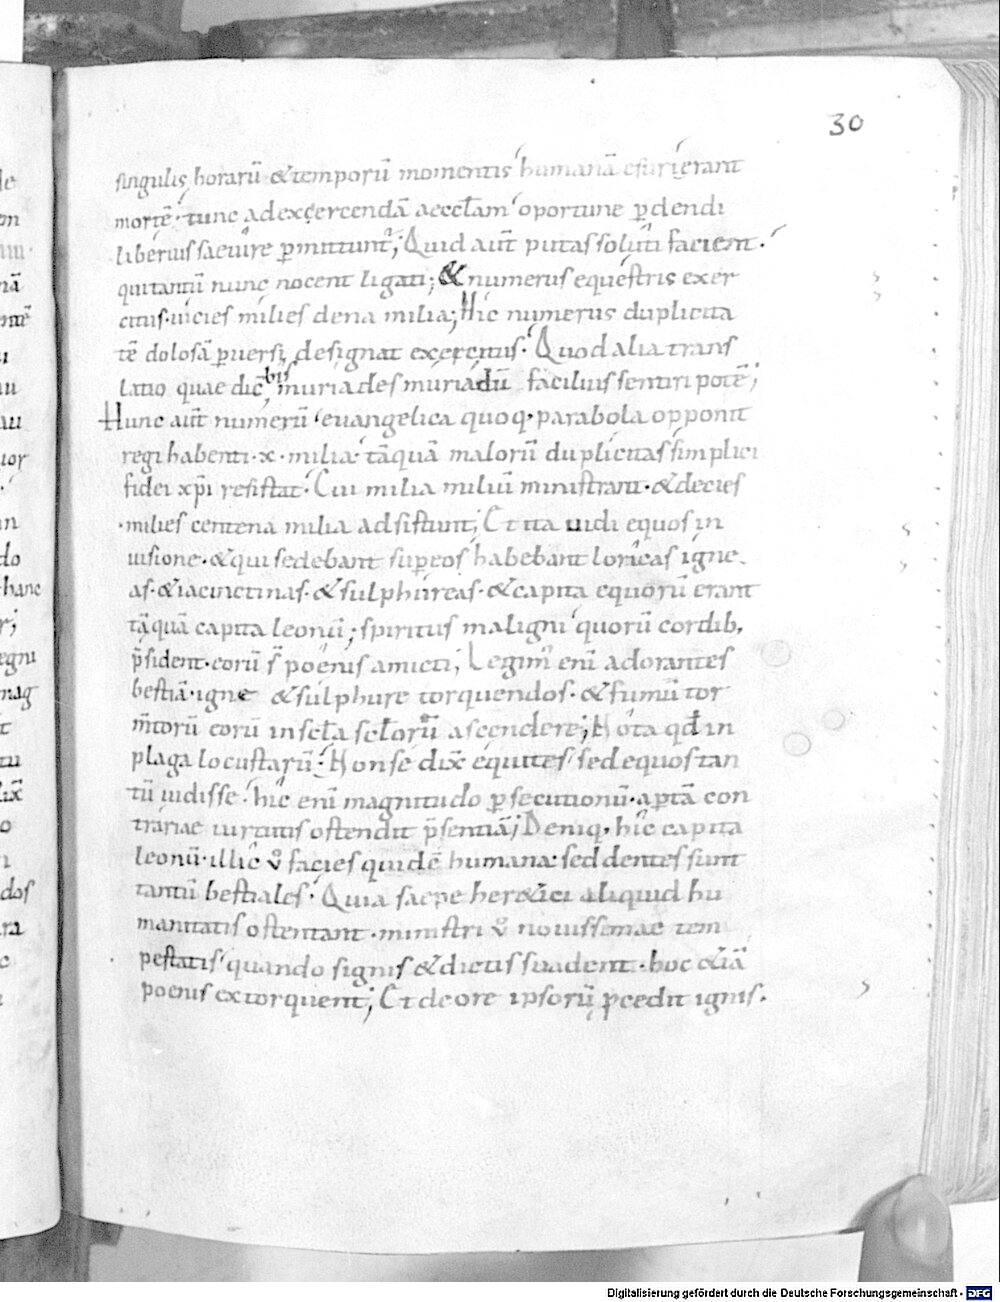 30
singulis horarū & temporū momentis humanā esurierant
mortē· tunc ad exercendā aecclam oportune p̄dendi
liberius saeuire p̄mittunt̄; Quid aut̄ putas soluti facient·
qui tantū nunc nocent ligati; & numerus equestris exer
citus· uicies milies dena milia; Hic numerus duplicita
tē dolosā puersi designat exercitus· Quod alia trans
latio quae dic̄ bis muriades muriadū facilius sentiri potē;
Hunc aut̄ numerū euangelica quoq· parabola opponit
regi habenti· x· milia· tāquā malorū duplicitas simplici
fidei xp̄i resistat· Cui milia miliū ministrant· & decies
·milies centena milia adsistunt; Et ita uidi equos in
uisione· & qui sedebant sup eos habebant loricas igne
as· & iacinctinas· & sulphureas· & capita equorū erant
tāquā capita leonū; spiritus maligni quorū cordib,
p̄sident· eorū s̄ poenis amicti; Legim̄ eni adorantes
bestiā· igne & sulphure torquendos· & fumū tor
m̄torū eorū in scl̄a scl̄orū ascendere; Nota qd̄ in
plaga locustarū· Non se dix̄ equites sed equos tan
tū uidisse· hic eni magnitudo p̄secutionū· aptā con
trariae uirtutis ostendit p̄sentiā; Deniq, hic capita
leonū· illic ů facies quidē humana: sed dentes sunt
tantū bestiales· Quia saepe her&ici aliquid hu
manitatis ostentant· ministri ů nouissimae tem
pestatis quando signis & dictis suadent· hoc &iā
poenis extorquent; Et de ore ipsorū p̄cedit ignis·
Digitalisierung gefördert durch die Deutsche Forschungsgemeinschaft - DFG